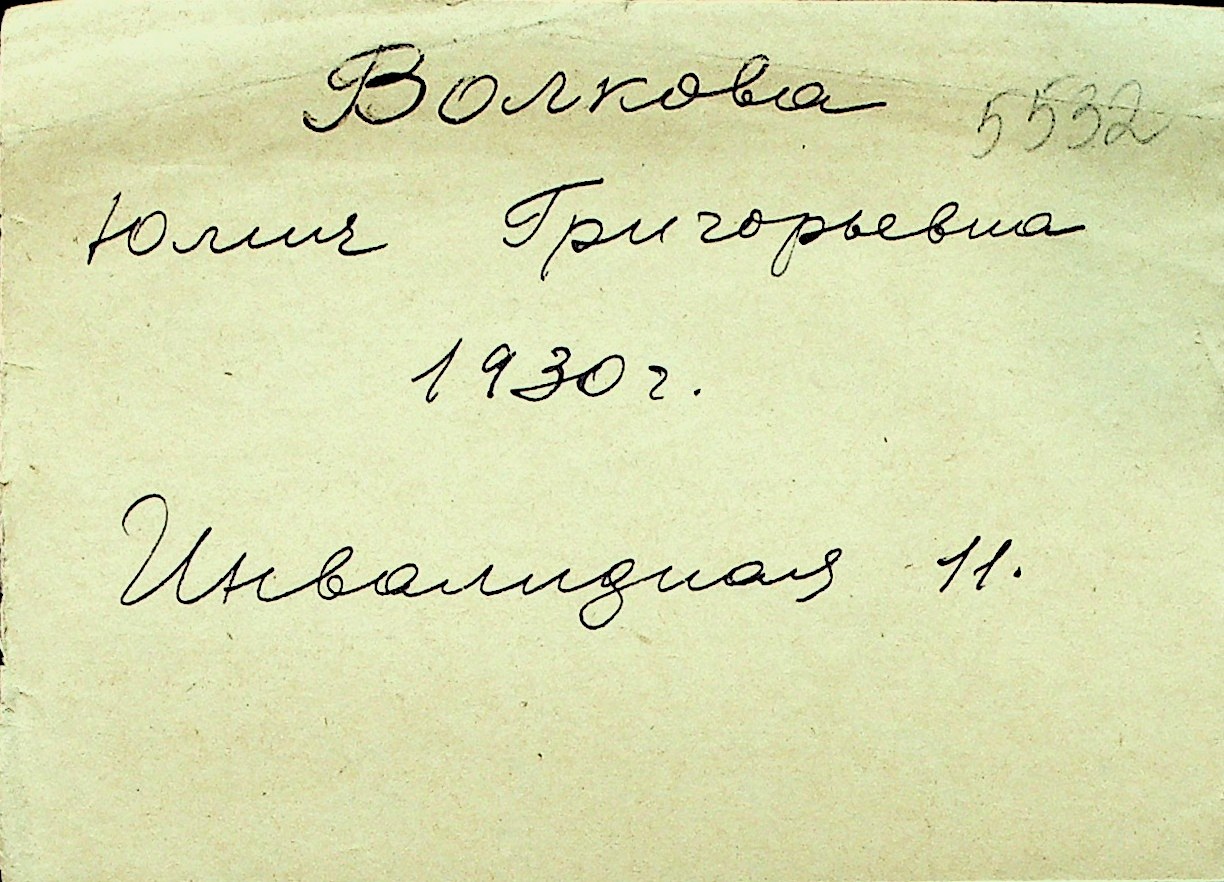 Волкова 5532
Юлия Григорьевна
1930 г.
Инвалидная 11.